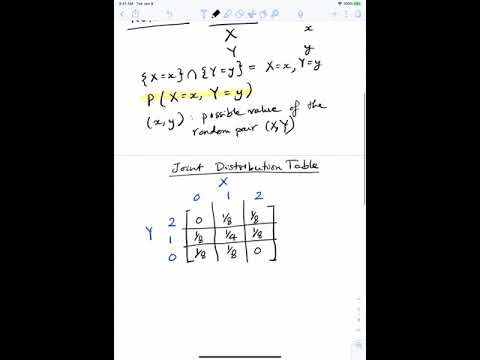 X x
Y y
{X=x}∩{Y=y} = X=x, Y=y
P(X=x, Y=y)
(x,y) : possible value of the
random pair (X,Y)
Joint Distribution Table
X
0 1 2
2 0 1/8 1/8
Y 1 1/8 1/4 1/8
0 1/8 1/8 0